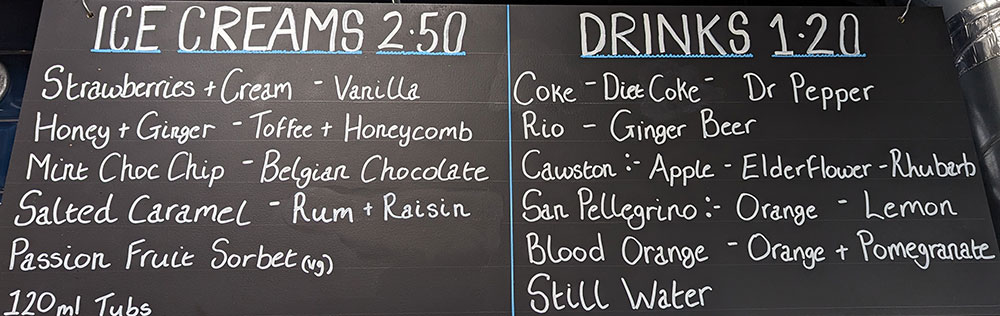 ICE CREAMS 2.50
Strawberries + Cream - Vanilla
Honey + Ginger - Toffee + Honeycomb
Mint Choc Chip - Belgian Chocolate
Salted Caramel - Rum + Raisin
Passion Fruit Sorbet (vg)
120ml Tubs
DRINKS 1.20
Coke - Diet Coke - Dr Pepper
Rio - Ginger Beer
Cawston :- Apple - Elderflower - Rhubarb
San Pellegrino :- Orange - Lemon
Blood Orange - Orange + Pomegranate
Still Water